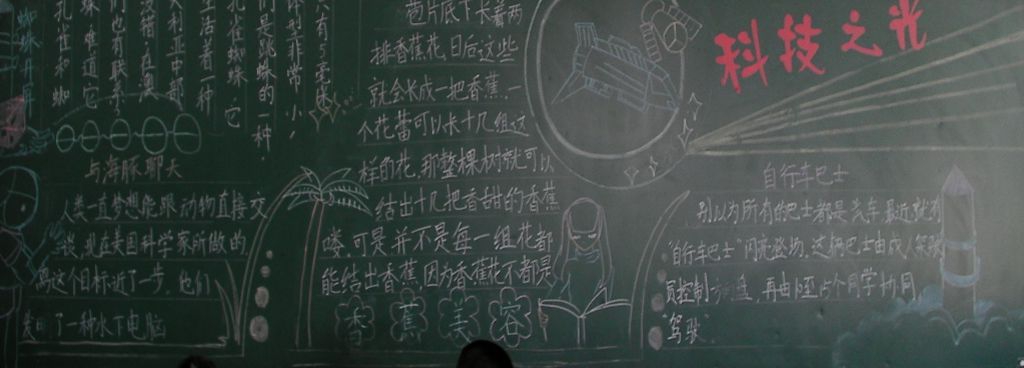 科技之光
苞片底下长着两
排香蕉花,日后,这些
就会长成一把香蕉,一
个花蕾可以长十几组这
样的花,那整棵树就可以
结出十几把香甜的香蕉
喽,可是并不是每一组花都
能结出香蕉,因为香蕉花不都是
香蕉美容
与海豚聊天
人类一直梦想能跟动物直接交
谈,现在美国科学家所做的
离这个目标近了一步,他们
发明了一种水下电脑
自行车巴士
别以为所有的巴士都是汽车,最近就有
"自行车巴士"闪亮登场,这辆巴士由成人驾驶
员控制
盘,再由
个同学协同
"驾驶"
只有5毫米
体型非常小,
们是跳蛛的一种,
孔雀蜘蛛,它
生活着一种
大利亚中部
没错,在澳
们也有联系
蛛,难道它
孔雀和蜘
蜘蛛开屏